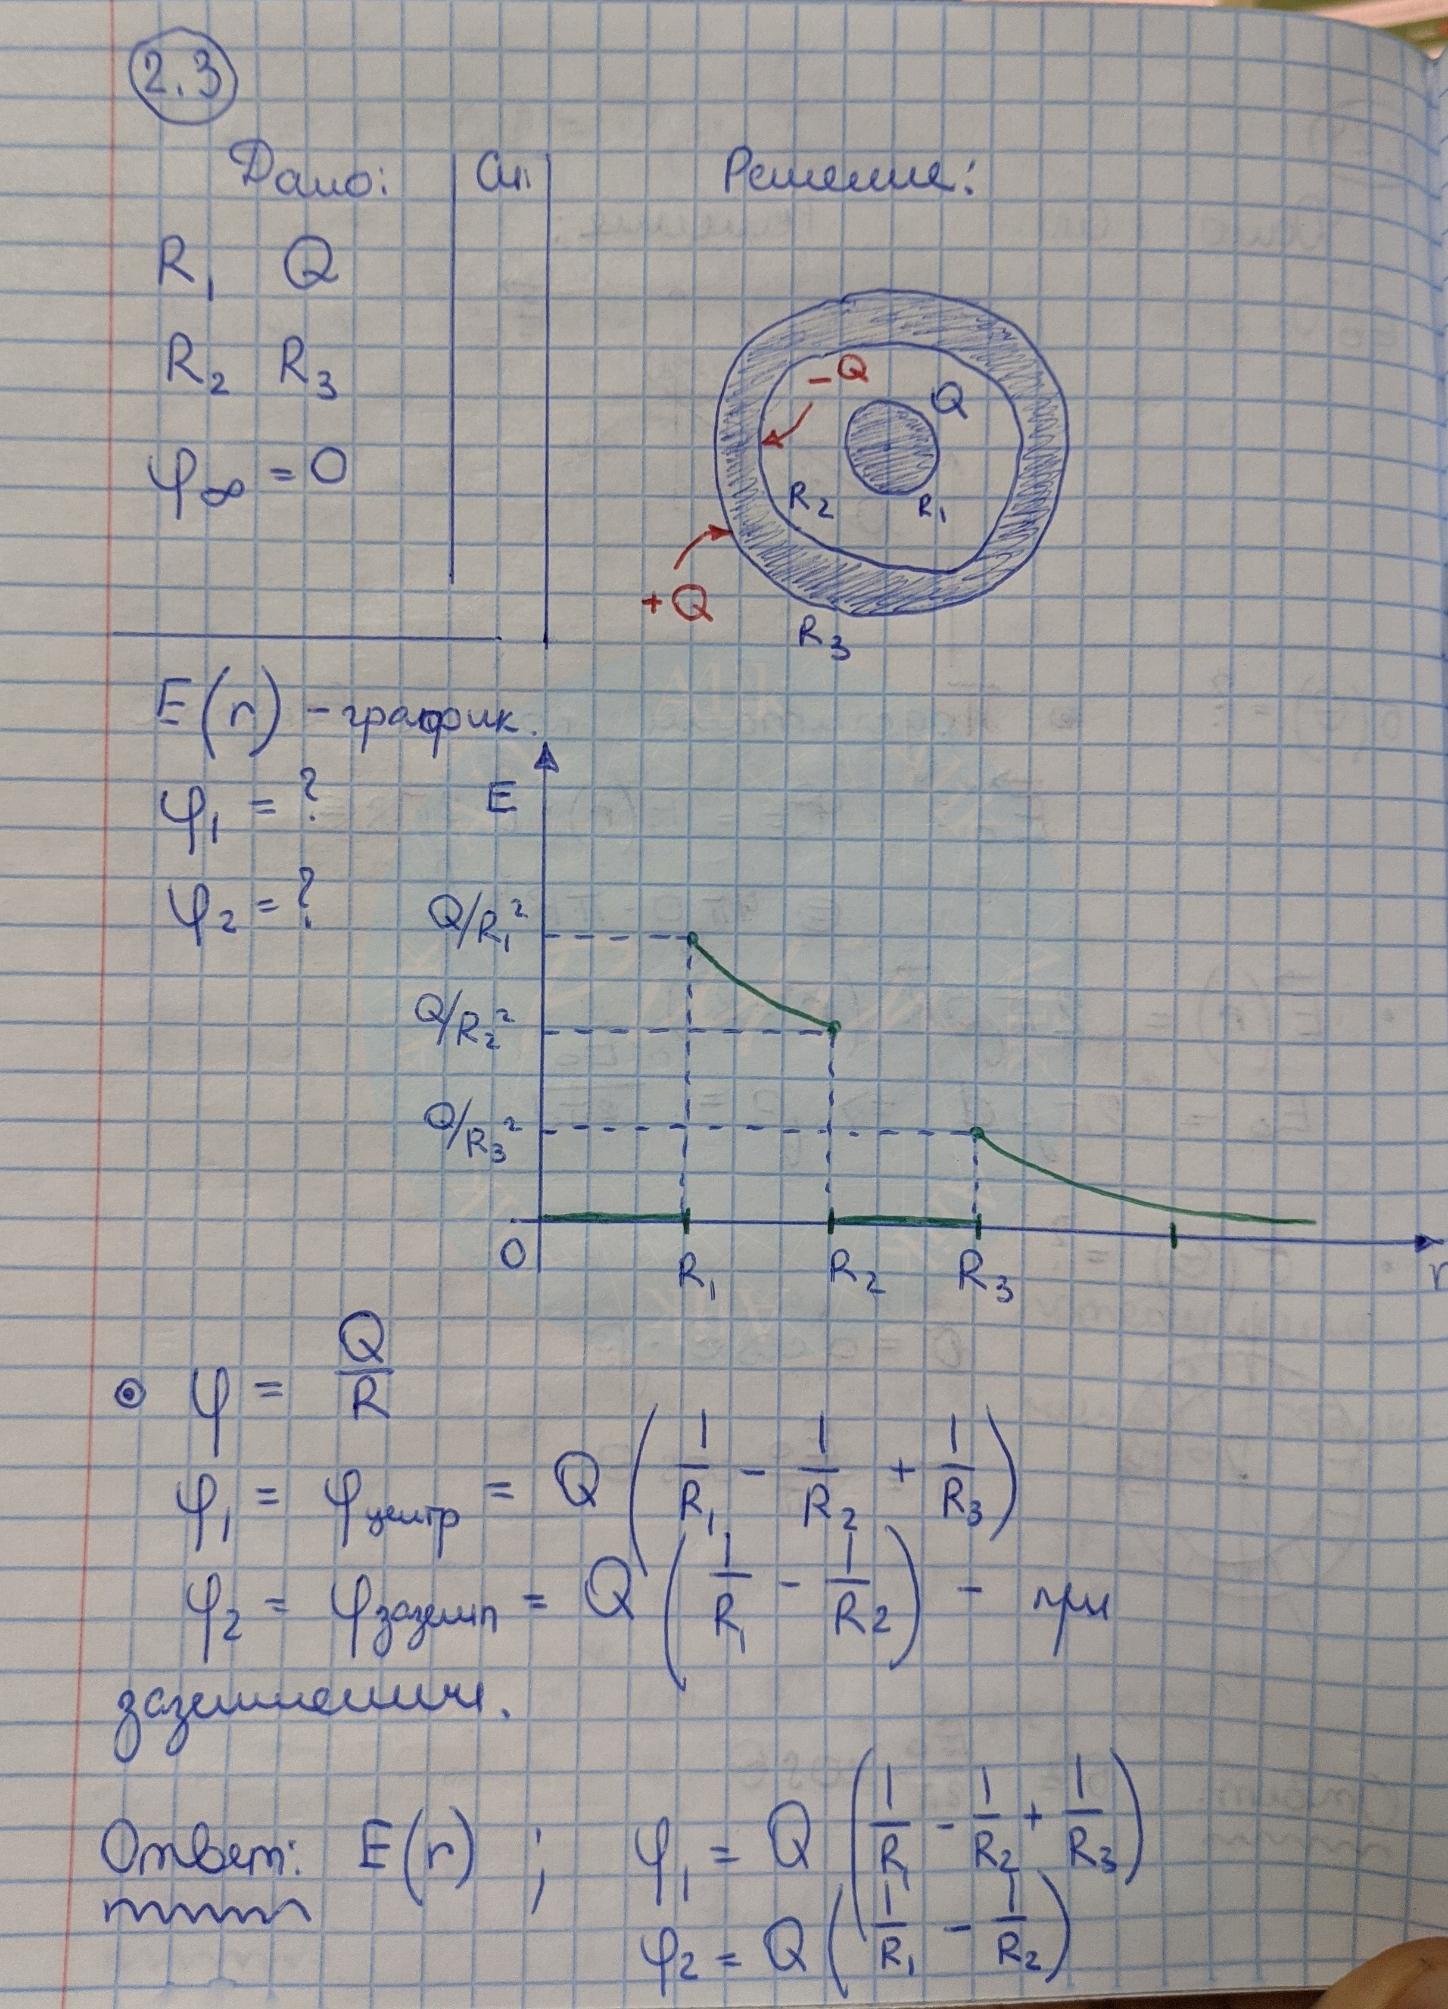 2.3
Дано: СИ Решение:
R₁ Q
R₂ R₃
φ∞ = 0
-Q
Q
R₂ R₁
+Q
R₃
E(r) - график.
φ₁ = ?
φ₂ = ?
E
Q/R₁²
Q/R₂²
Q/R₃²
0 R₁ R₂ R₃ r
φ = Q/R
φ₁ = φцентр = Q (1/R₁ - 1/R₂ + 1/R₃)
φ₂ = φзаземл = Q (1/R₁ - 1/R₂) - при
заземлении.
Ответ: E(r) ; φ₁ = Q (1/R₁ - 1/R₂ + 1/R₃)
φ₂ = Q (1/R₁ - 1/R₂)